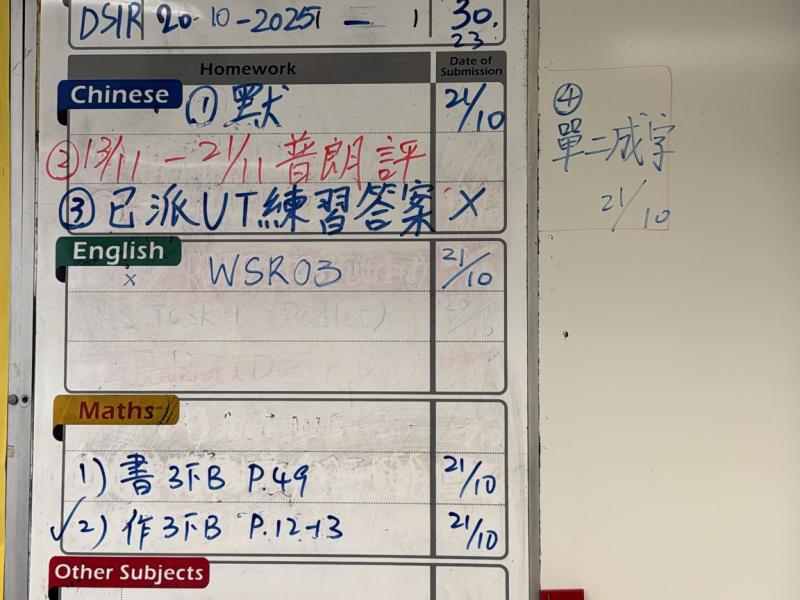 DSIR 20-10-2025 — 1 30.
23
Homework Date of Submission
Chinese ① 默 21/10
② 13/11 - 21/11 普朗評
③ 已派UT練習答案 X
④
單二成字
21/10
English
x WSR03 21/10
Task 1
Maths
1) 書 3下B P.49 21/10
✓2) 作 3下B P.12-13 21/10
Other Subjects